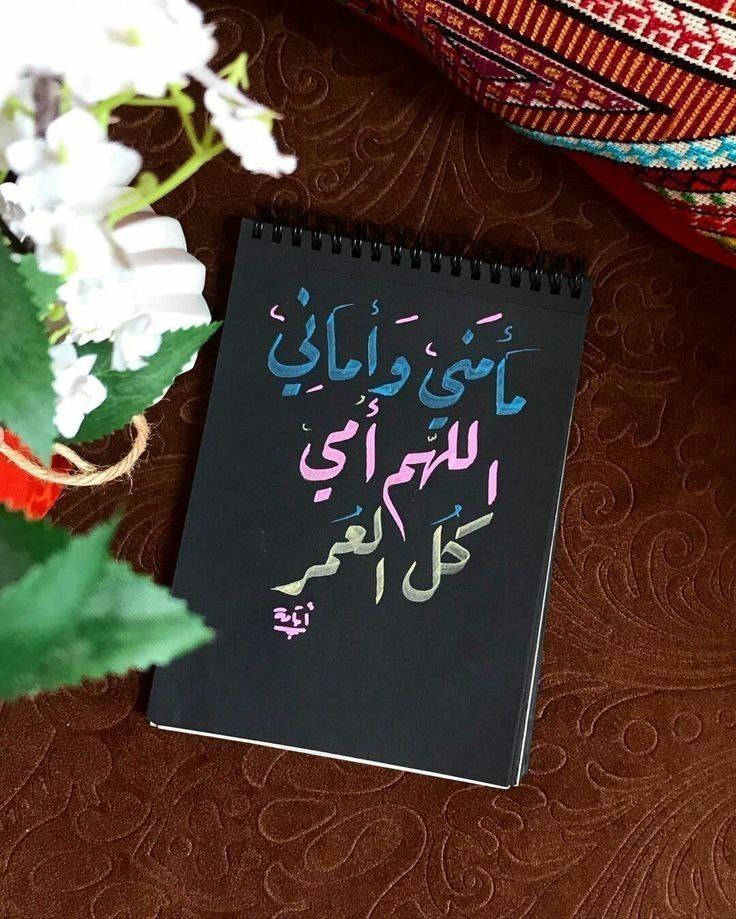 مَأْمَني وَأمَانِيَ
اللهُم أُمي
كُل العُمر